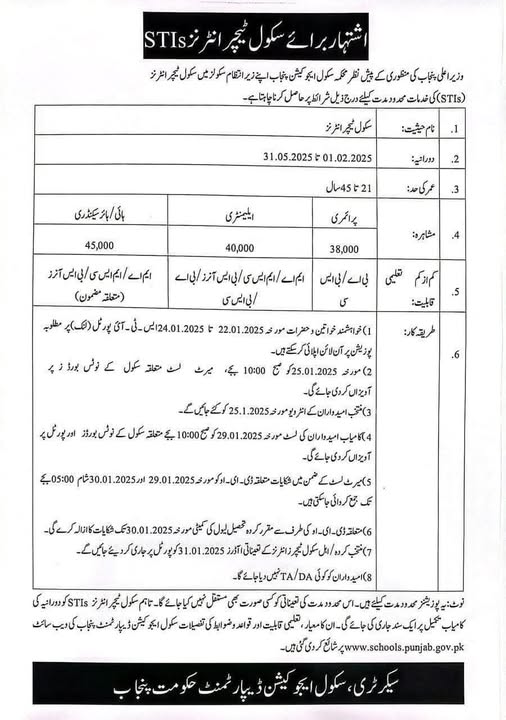 اشتہار برائے سکول ٹیچر انٹرنز STIs
وزیر اعلی پنجاب کی منظوری کے پیش نظر محکمہ سکول ایجوکیشن پنجاب اپنے زیر انتظام سکولز میں سکول ٹیچر انٹرنز
(STIs) کی خدمات محدود مدت کیلئے درج ذیل شرائط پر حاصل کرنا چاہتا ہے۔
1. نام حیثیت: سکول ٹیچر انٹرنز
2. دورانیہ: 01.02.2025 تا 31.05.2025
3. عمر کی حد: 21 تا 45 سال
4. مشاہرہ: پرائمری ایلیمنٹری ہائی/ہائر سیکنڈری
38,000 40,000 45,000
5. کم از کم تعلیمی قابلیت: بی اے/بی ایس سی ایم اے/ایم ایس سی/بی ایس آنرز/بی اے/بی ایس سی ایم اے/ایم ایس سی/بی ایس آنرز (متعلقہ مضمون)
6. طریقہ کار: 1) خواہشمند خواتین و حضرات مورخہ 22.01.2025 تا 24.01.2025 ایس۔ٹی۔آئی پورٹل (لنک) پر مطلوبہ
پوزیشن پر آن لائن اپلائی کر سکتے ہیں۔
2) مورخہ 25.01.2025 کو صبح 10:00 بجے، میرٹ لسٹ متعلقہ سکول کے نوٹس بورڈز پر
آویزاں کر دی جائے گی۔
3) منتخب امیدواران کے انٹرویو مورخہ 25.1.2025 کو کئے جائیں گے۔
4) کامیاب امیدواران کی لسٹ مورخہ 29.01.2025 کو صبح 10:00 بجے متعلقہ سکول کے نوٹس بورڈز اور پورٹل پر
آویزاں کر دی جائے گی۔
5) میرٹ لسٹ کے ضمن میں شکایات متعلقہ ڈی۔ای۔او کو مورخہ 29.01.2025 اور 30.01.2025 شام 05:00 بجے
تک جمع کروائی جا سکتی ہیں۔
6) متعلقہ ڈی۔ای۔او کی طرف سے مقرر کردہ تحصیل لیول کی کمیٹی مورخہ 30.01.2025 تک شکایات کا ازالہ کرے گی۔
7) منتخب کردہ/اہل سکول ٹیچرز انٹرنز کے تعیناتی آرڈرز 31.01.2025 کو پورٹل پر جاری کر دیئے جائیں گے۔
8) امیدواران کو کوئی TA/DA نہیں دیا جائے گا۔
نوٹ: یہ پوزیشنز محدود مدت کیلئے ہیں۔ اس محدود مدت کی تعیناتی کو کسی صورت بھی مستقل نہیں کیا جائے گا۔ تاہم سکول ٹیچر انٹرنز STIs کو دورانیہ کی
کامیاب تکمیل پر ایک سند جاری کی جائے گی۔ ان کا معیار، تعلیمی قابلیت اور قواعد و ضوابط کی تفصیلات سکول ایجوکیشن ڈیپارٹمنٹ پنجاب کی ویب سائٹ
www.schools.punjab.gov.pk پر شائع کر دی گئی ہیں۔
سیکرٹری، سکول ایجوکیشن ڈیپارٹمنٹ حکومت پنجاب